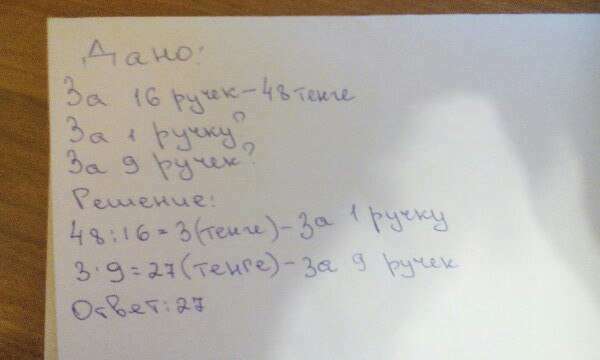 Дано:
За 16 ручек-48 тенге
За 1 ручку?
За 9 ручек?
Решение:
48:16=3(тенге)-За 1 ручку
3·9=27(тенге)-За 9 ручек
Ответ:27